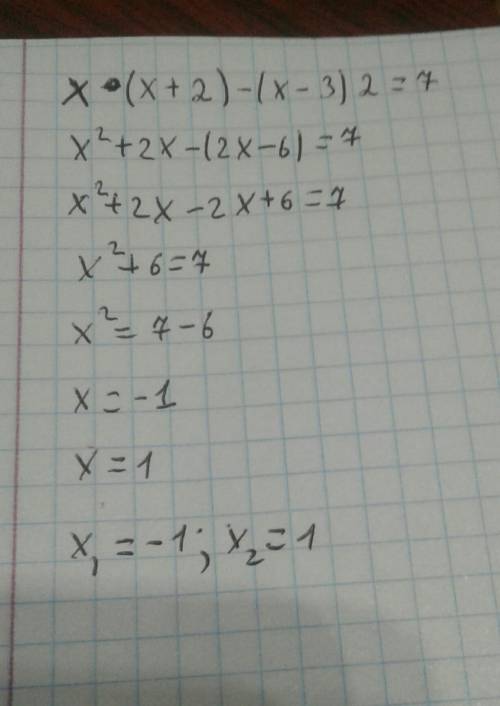 x • (x + 2) - (x - 3) 2 = 7
x² + 2x - (2x - 6) = 7
x² + 2x - 2x + 6 = 7
x² + 6 = 7
x² = 7 - 6
x = -1
x = 1
x₁ = -1; x₂ = 1